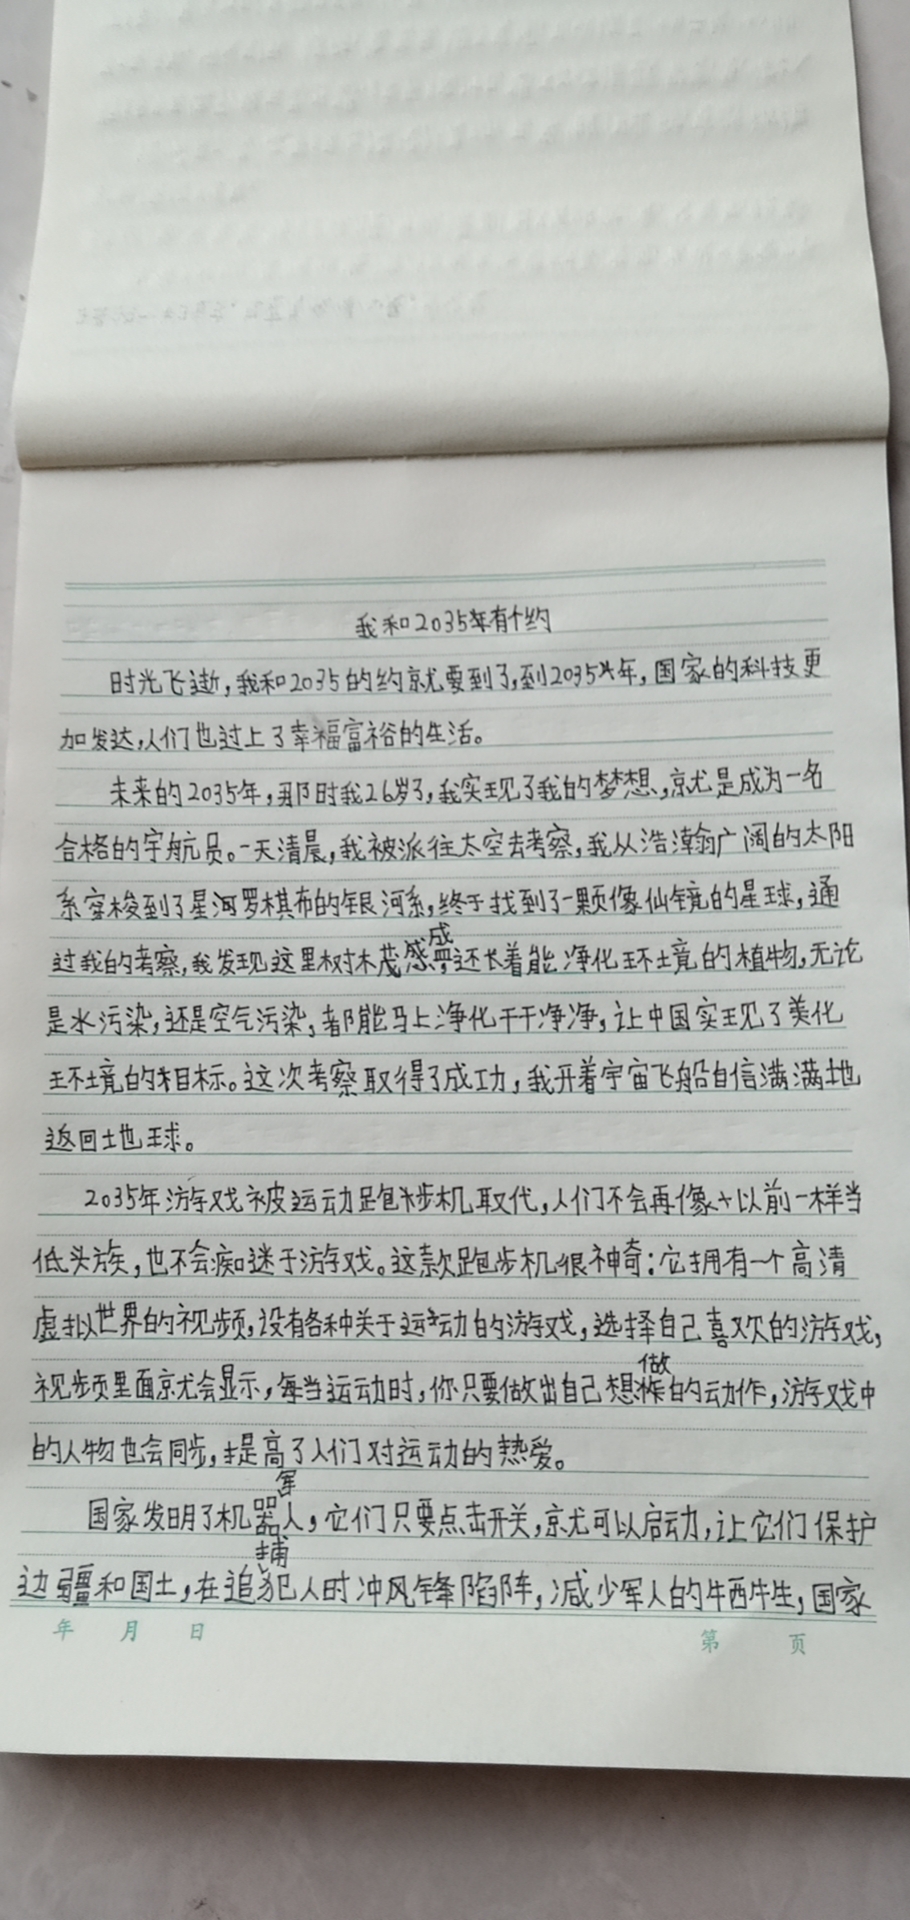 我和2035年有个约
时光飞逝，我和2035的约就要到了，到2035年，国家的科技更
加发达，人们也过上了幸福富裕的生活。
未来的2035年，那时我26岁了，我实现了我的梦想，就是成为一名
合格的宇航员。一天清晨，我被派往太空去考察，我从浩瀚广阔的太阳
系穿梭到了星河罗棋布的银河系，终于找到了一颗像仙镜的星球，通
成
过我的考察，我发现这里树木茂感，还长着能净化环境的植物，无论
是水污染，还是空气污染，都能马上净化干干净净，让中国实现了美化
环境的目标。这次考察取得了成功，我开着宇宙飞船自信满满地
返回地球。
2035年游戏被运动跑步机取代，人们不会再像以前一样当
低头族，也不会痴迷于游戏。这款跑步机很神奇：它拥有一个高清
虚拟世界的视频，设有各种关于运动的游戏，选择自己喜欢的游戏，
做
视频里面就会显示，每当运动时，你只要做出自己想的动作，游戏中
的人物也会同步，提高了人们对运动的热爱。
军
国家发明了机器人，它们只要点击开关，就可以启动，让它们保护
捕
边疆和国土，在追犯人时冲风锋陷阵，减少军人的牺牲，国家
年 月 日
第 页